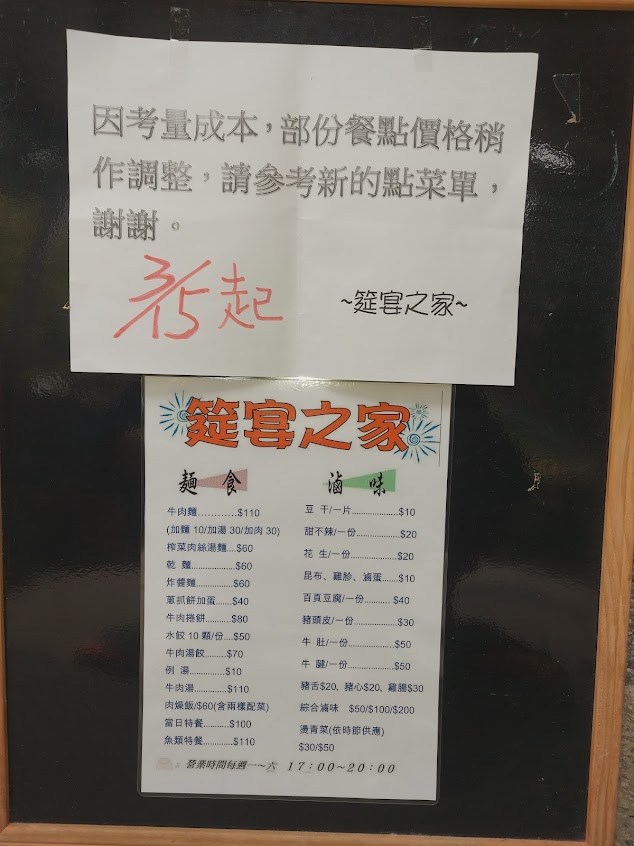 因考量成本，部份餐點價格稍
作調整，請參考新的點菜單，
謝謝。
3/15起
~筵宴之家~
筵宴之家
麵 食
牛肉麵............$110
(加麵 10/加湯 30/加肉 30)
榨菜肉絲湯麵....$60
乾 麵..................$60
炸醬麵...............$60
蔥抓餅加蛋.......$40
牛肉捲餅...........$80
水餃 10 顆/份....$50
牛肉湯餃.........$70
例 湯................$10
牛肉湯..............$110
肉燥飯/$60(含兩樣配菜)
當日特餐...........$100
魚類特餐............$110
滷 味
豆 干/一片...................$10
甜不辣/一份..................$20
花 生/一份....................$20
昆布、雞胗、滷蛋......$10
百頁豆腐/一份........... $40
豬頭皮/一份.................$30
牛 肚/一份...................$50
牛 腱/一份...................$50
豬舌$20、豬心$20、雞腸$30
綜合滷味 $50/$100/$200
燙青菜(依時節供應)
$30/$50
營業時間每週一～六 17:00~20:00